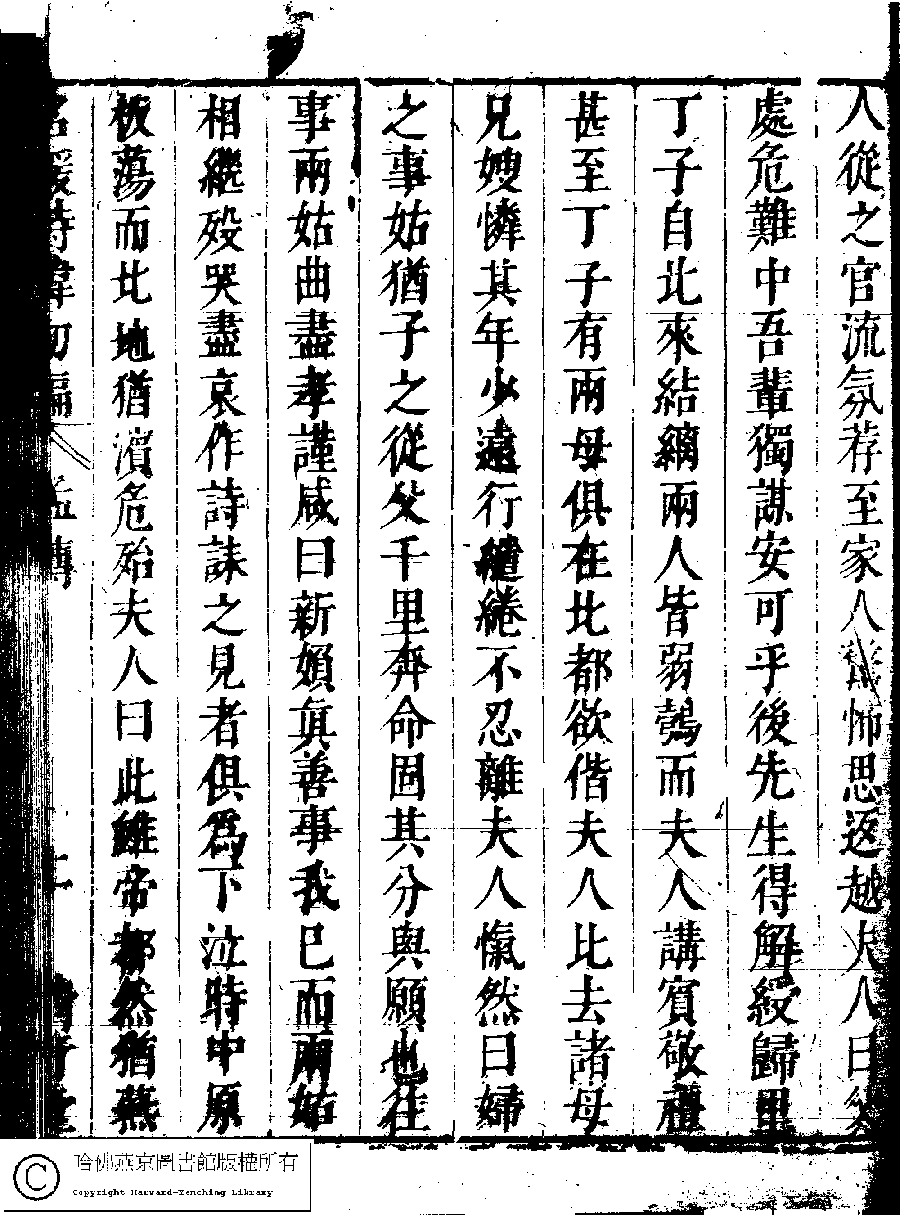 人從之官流氛荐至家人驚怖思返越夫人曰公
處危難中吾輩獨謀安可乎後先生得解綬歸里
丁子自北來結縭兩人皆弱鴞而夫人講賓敬禮
甚至丁子有兩母俱在北都欲偕夫人北去諸母
兄嫂憐其年少遠行繾綣不忍離夫人愾然曰婦
之事姑猶子之從父千里奔命固其分與願也往
事兩姑曲盡孝謹咸曰新婦真善事我已而兩姑
相繼歿哭盡哀作詩誄之見者俱爲下泣時中原
板蕩而北地猶濱危殆夫人曰此雖帝都然猶燕
名媛詩緯初編 孟傳
哈佛燕京圖書館版權所有
Copyright Harvard-Yenching Library